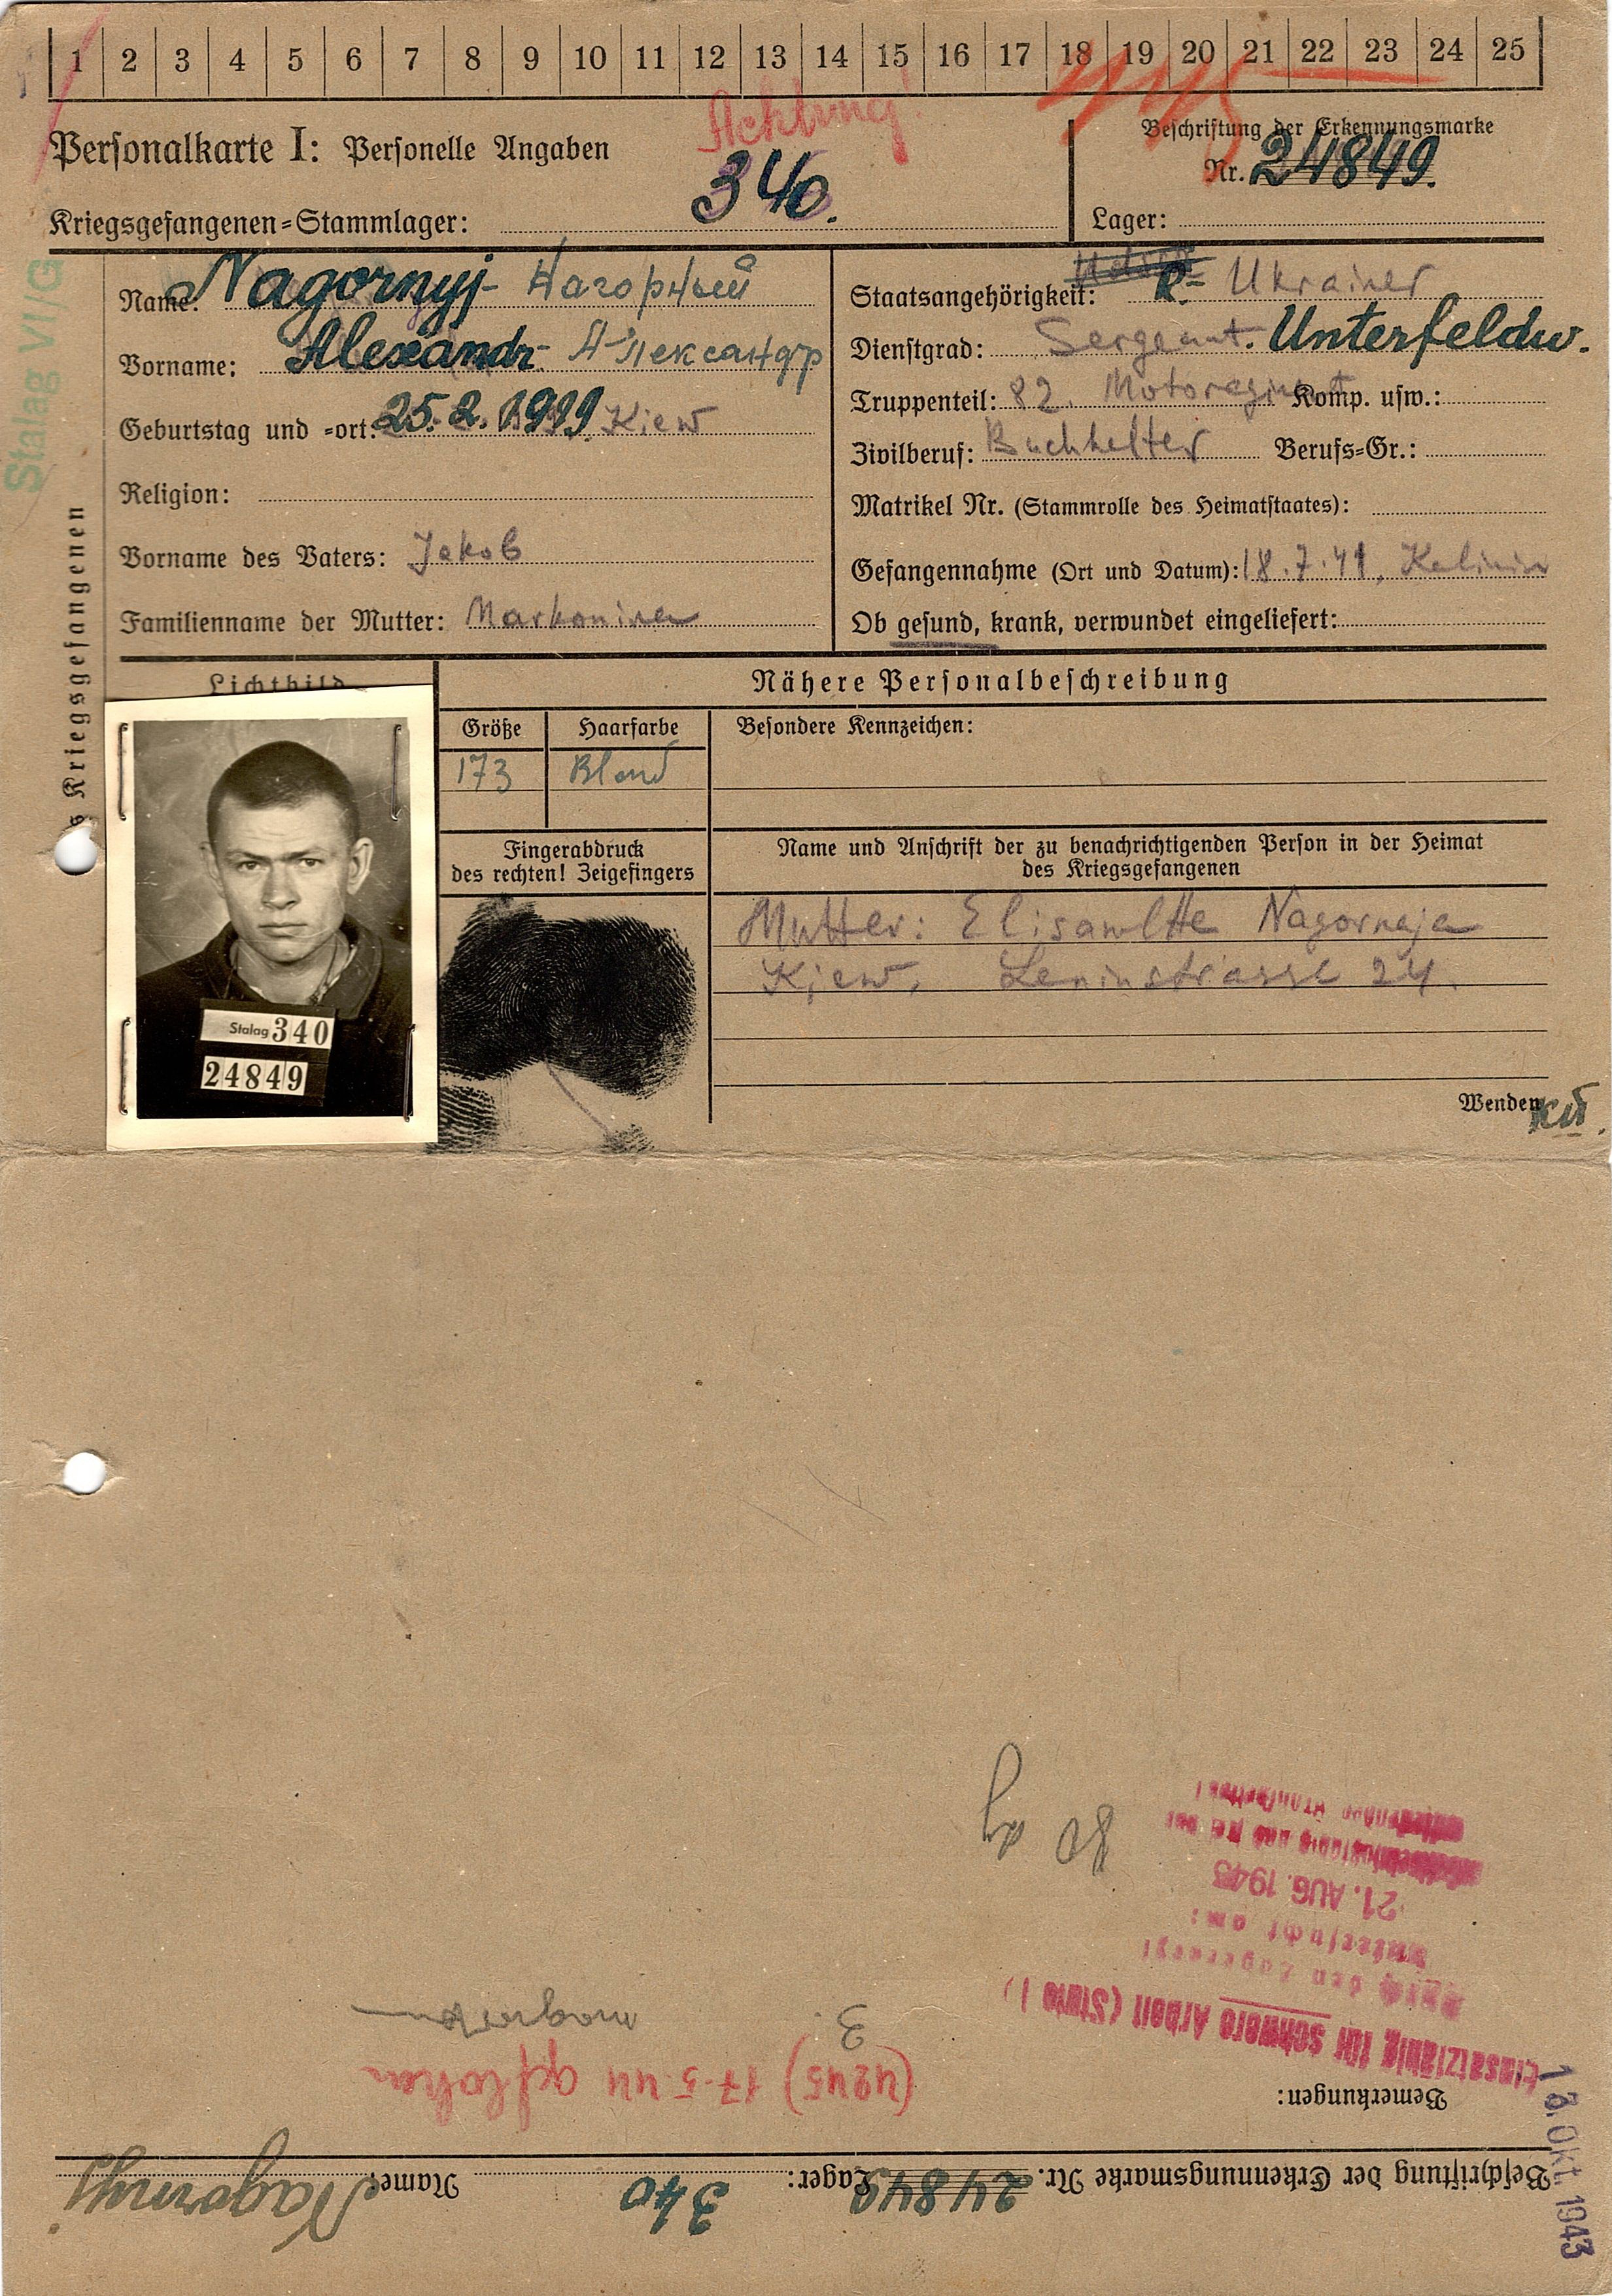 1 2 3 4 5 6 7 8 9 10 11 12 13 14 15 16 17 18 19 20 21 22 23 24 25
Achtung!
Personalkarte I: Personelle Angaben
Beschriftung der Erkennungsmarke
Nr. 24849.
Kriegsgefangenen-Stammlager: 340.
Lager:
Stalag VI/G
Kriegsgefangenen
Name: Nagornyj- Нагорный
Vorname: Alexandr- Александр
Geburtstag und -ort: 25.2.1919. Kiew
Religion:
Vorname des Vaters: Jakob
Familienname der Mutter:
Staatsangehörigkeit: R- Ukrainer
Dienstgrad: Sergeant. Unterfeldw.
Truppenteil: 82. Motoregiment Komp. usw.:
Zivilberuf: Buchhalter Berufs-Gr.:
Matrikel Nr. (Stammrolle des Heimatstaates):
Gefangennahme (Ort und Datum): 18.7.41, Kalinin
Ob gesund, krank, verwundet eingeliefert:
Lichtbild
Nähere Personalbeschreibung
Größe Haarfarbe Besondere Kennzeichen:
173 Blond
Fingerabdruck
des rechten! Zeigefingers
Name und Anschrift der zu benachrichtigenden Person in der Heimat
des Kriegsgefangenen
Mutter: Nagornaja
Kiew, Leninstrasse 24.
Stalag 340
24849
Wenden
Beschriftung der Erkennungsmarke Nr. 24849 Lager: 340 Name: Nagornyj
13. Okt. 1943
Bemerkungen:
(4245) 17.5.44 geflohen
Einsatzfähig für schwere Arbeit (Stufe I)
3.
durch den Lagerarzt
untersucht am:
21. AUG. 1943